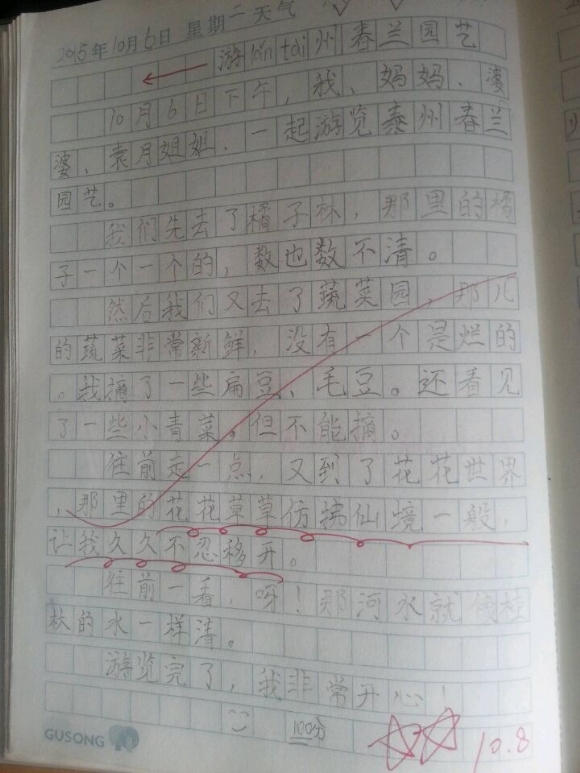 2015年10月6日 星期二 天气
游 tài 州 春兰园艺
10月6日下午，我、妈妈、婆
婆、袁月姐姐，一起游览泰州春兰
园艺。
我们先去了橘子林，那里的橘
子一个一个的，数也数不清。
然后我们又去了蔬菜园，那儿
的蔬菜非常新鲜，没有一个是烂的
。我摘了一些扁豆、毛豆。还看见
了一些小青菜，但不能摘。
往前走一点，又到了花花世界
，那里的花花草草仿拂仙境一般，
让我久久不忍移开。
往前一看，呀！那河水就像
的水一样清。
游览完了，我非常开心！
100分
10.8
GUSONG